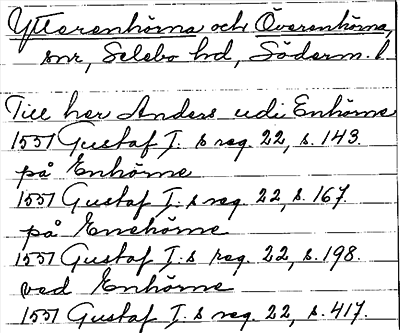 Ytterenhörna och Överenhörna,
snr, Selebo hd, Söderm. l.
Till her Anders udi Enhörne
1551 Gustaf I. s reg. 22, s. 143.
på Enhörne
1551 Gustaf I. s reg. 22, s. 167.
på Enehörne
1551 Gustaf I. s reg. 22, s. 198.
ved Enhörne
1551 Gustaf I. s reg. 22, s. 417.